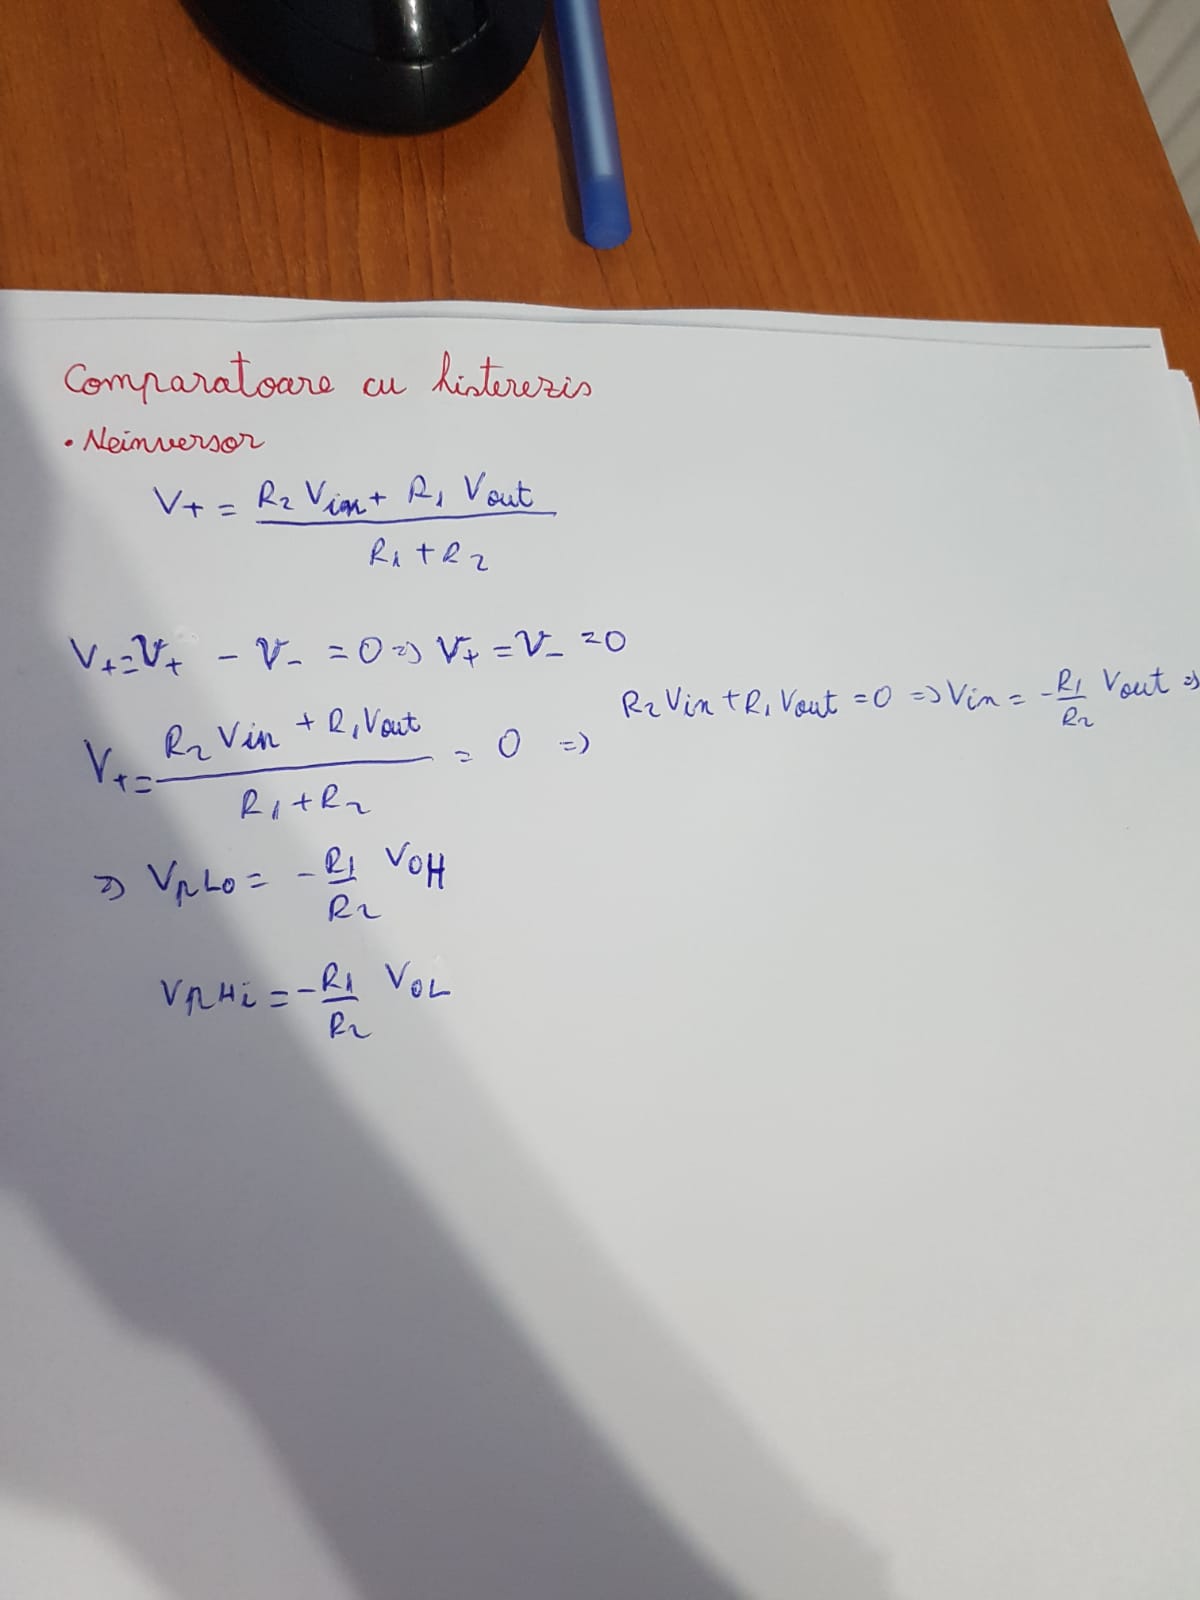 Comparatoare cu histerezis
• Neinversor
V+ = (R2 Vin + R1 Vout) / (R1 + R2)
V+ = V+ - V- = 0 => V+ = V- = 0
V+ = (R2 Vin + R1 Vout) / (R1 + R2) = 0 => R2 Vin + R1 Vout = 0 => Vin = - R1/R2 Vout =>
=> VPLo = - R1/R2 VOH
VPHi = - R1/R2 VOL